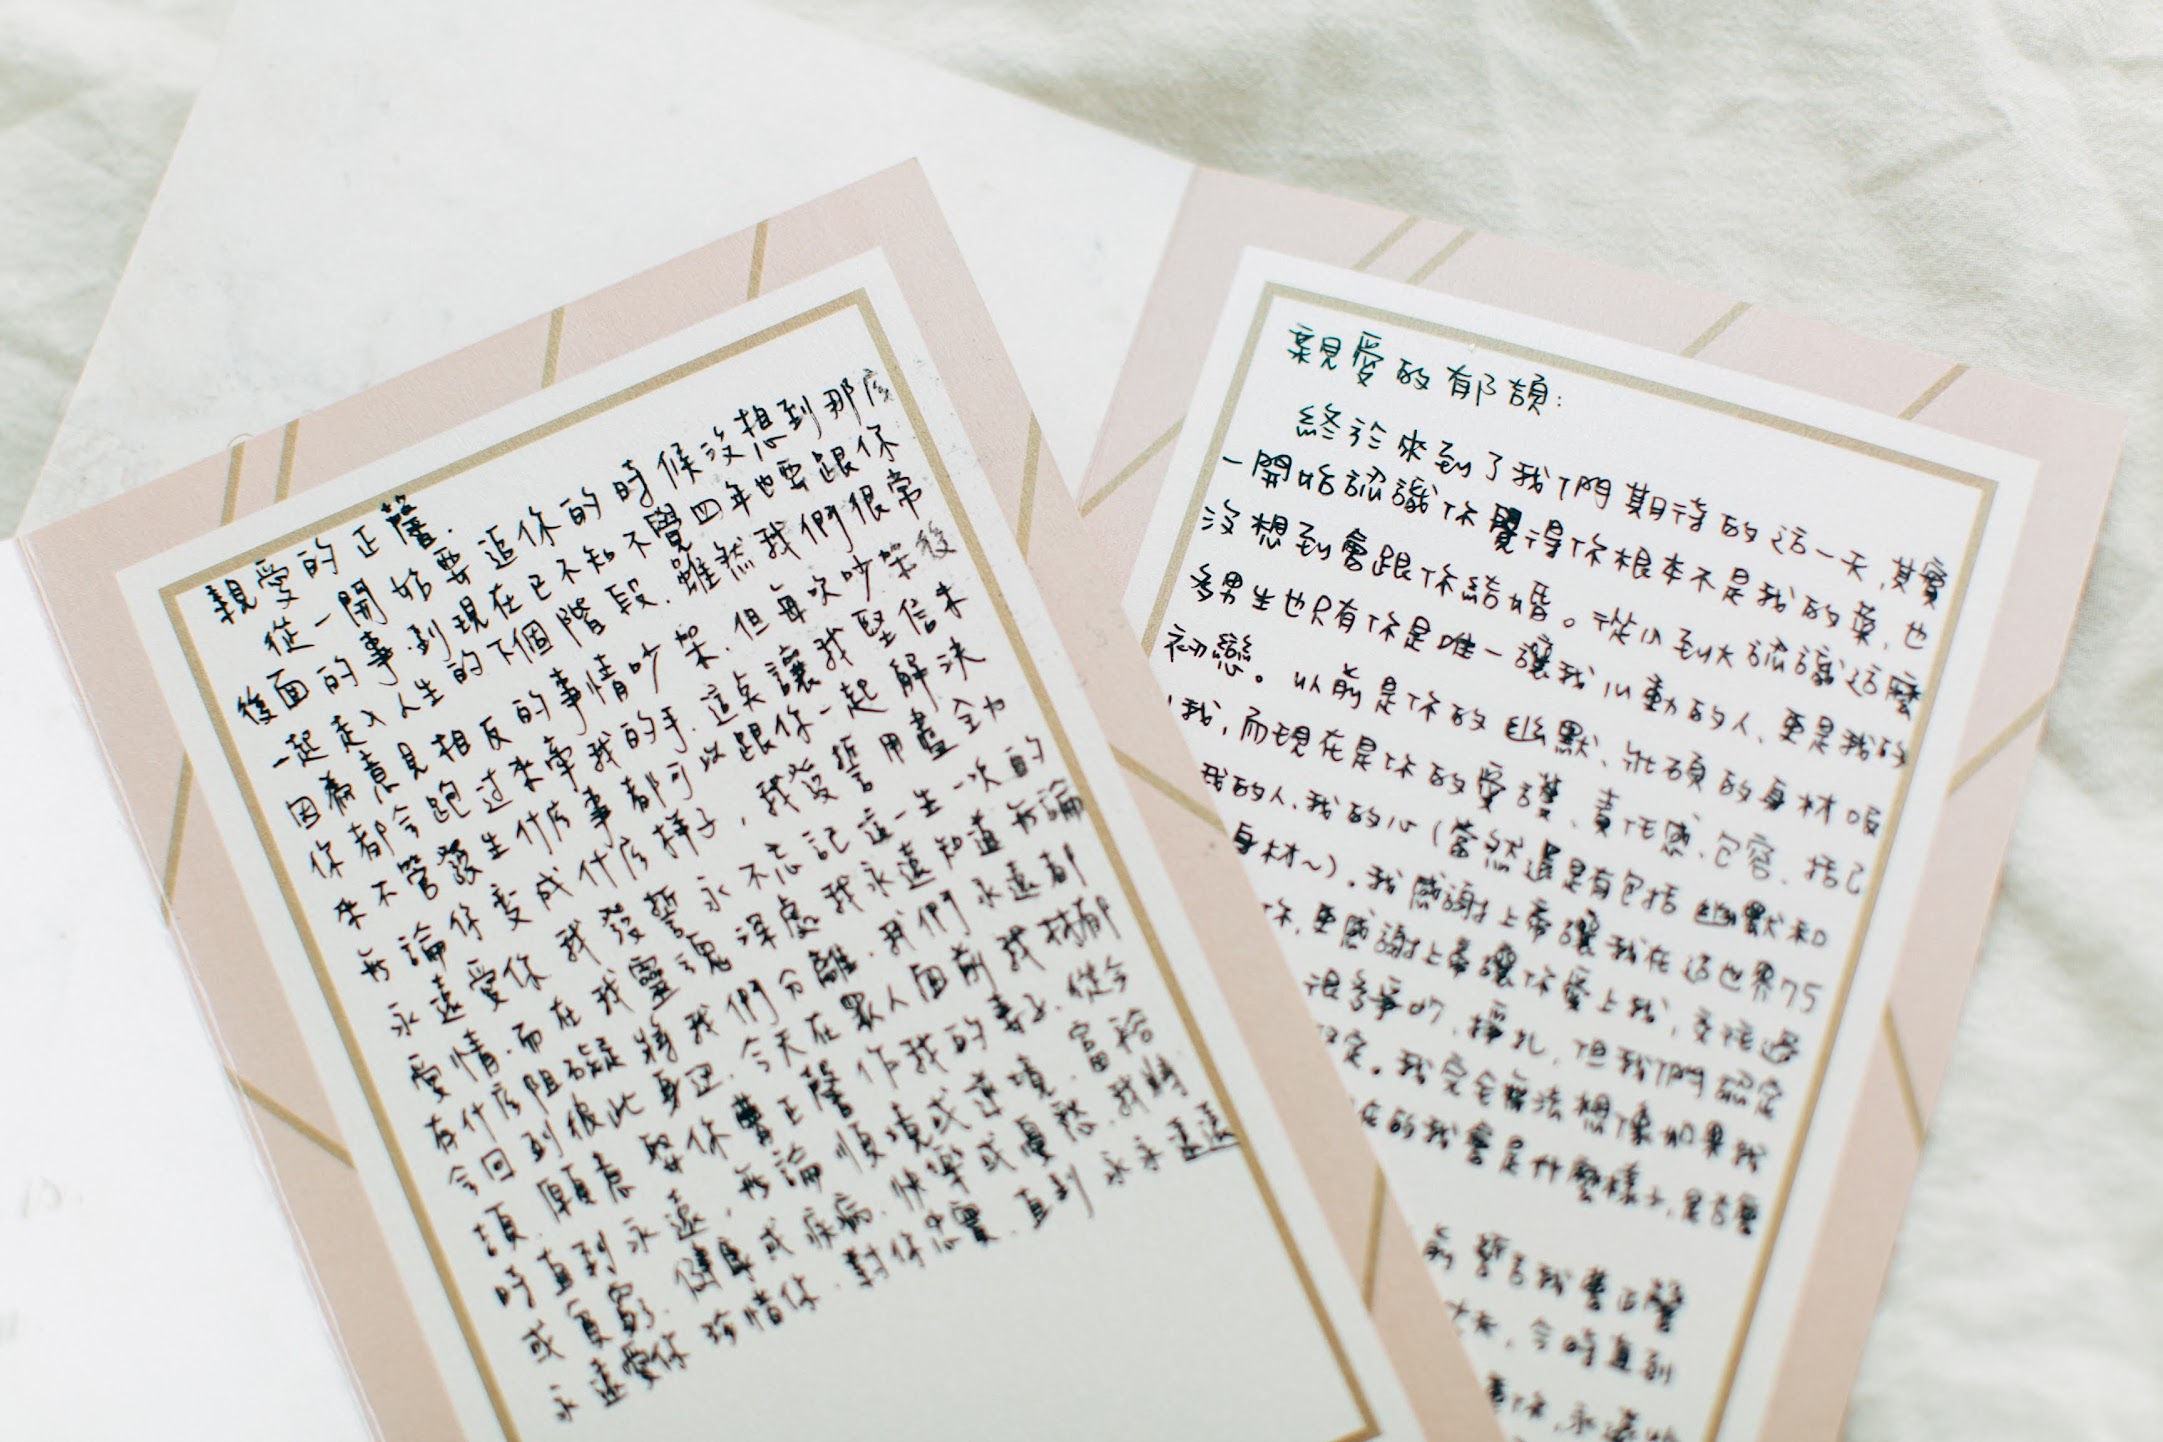 親愛的正馨.
從一開始要追你的時候沒想到那麼
後面的事.到現在已不知不覺四年也要跟你
一起走入人生的下個階段.雖然我們很常
因為意見相反的事情吵架.但每次吵架後
你都會跑過來牽我的手.這点讓我堅信未
來不管發生什麼事都可以跟你一起解決
無論你變成什麼樣子,我發誓用盡全力
永遠愛你 我發誓永不忘記這一生一次的
愛情.而在我靈魂深處我永遠知道無論
有什麼阻礙將我們分離.我們永遠都
會回到彼此身邊.今天在眾人面前我林郁
頡.願意娶你曹正馨作我的妻子.從今
時直到永遠,無論順境或逆境.富裕
或貧窮.健康或疾病.快樂或憂愁.我將
永遠愛你珍惜你.對你忠實.直到永永遠遠
親愛的郁頡:
終於來到了我們期待的這一天,其實
一開始認識你覺得你根本不是我的菜,也
沒想到會跟你結婚。從小到大認識這麼
多男生也只有你是唯一讓我心動的人、更是我的
初戀。以前是你的幽默、壯碩的身材吸
我,而現在是你的愛護、責任感、包容、括己
我的人、我的心(當然還是有包括幽默和
身材~).我感謝上帝讓我在這世界75
你,更感謝上帝讓你愛上我,交往過
很多爭吵,掙扎,但我們認定
定。我完全無法想像如果我
在的我會是什麼樣子,是否
前 誓言我曹正馨
丈夫,今時直到
你,永遠